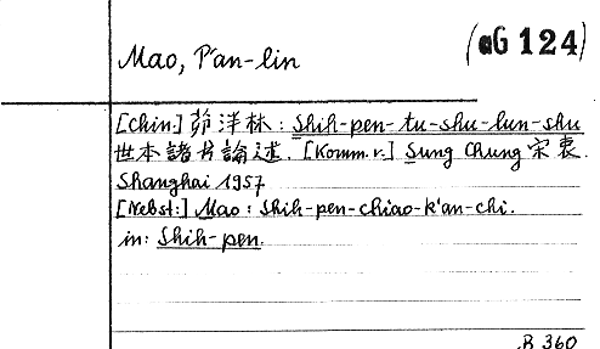 Mao, P'an-lin
(aG 124)
[Chin] 茆泮林: Shih-pen-tu-shu-lun-shu
世本諸书論述. [Komm. v.] Sung Chung 宋衷.
Shanghai 1957
[Nebst:] Mao: Shih-pen-chiao-k'an-chi.
in: Shih-pen.
B 360